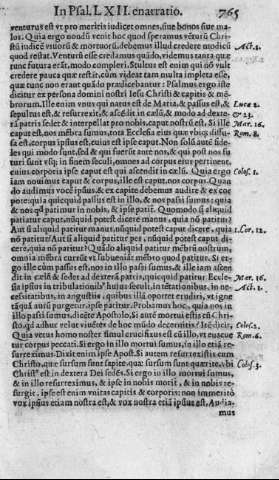 In Psal. LXII. enarratio. 765
venturus est vt pro meritis iudicet omnes, siue bonos siue ma-
los. Quia ergo nondū venit hoc quod speramus vēturū Chri-
stū iudicē viuorū & mortuorū, debemus illud credere modicū
quod restat. Venturū esse credamus quādo, videmus tanta quæ
tunc futura erāt, modo compleri. Stultus est enim qui nō vult
credere pauca quæ restāt, cùm videat tam multa impleta esse,
quæ tunc non erant quādo prædicabantur. Psalmus ergo iste
dicitur ex persona domini nostri Iesu Christi & capitis & mē-
brorum. Ille enim vnus qui natus est de Maria, & passus est, &
sepultus est, & resurrexit, & ascēdit in cælū, & modo ad dexte-
rā patris sedet & interpellat pro nobis, caput nostrū est. Si ille
caput est, nos mēbra sumus, tota Ecclesia eius quæ vbiq; diffu-
sa est, corpus ipsius est, cuius est ipse caput. Non solū autē fide-
les qui modo sunt, sed & qui fuerūt ante nos, & qui post nos fu-
turi sunt vsq; in finem seculi, omnes ad corpus eius pertinent,
cuius corporis ipse caput est qui ascendit in cælū. Quia ergo
iam nouimus caput & corpus, ille est caput, nos corpus. Quan
do audimus vocē ipsius, & ex capite debemus audire & ex cor
pore: quia quicquid passus est in illo, & nos passi sumus: quia
& nos qđ patimur in nobis, & ipse patit. Quomodo si aliquid
patiatur caput, nūquid potest dicere manus, quia nō patitur?
Aut si aliquid patitur manus, nūquid potest caput dicere, quia
nō patitur? Aut si aliquid patitur pes, nūquid potest caput di-
cere, quia nō patitur? Quādo aliquid patitur mēbrū nostrum,
omnia mēbra currūt vt subueniāt mēbro quod patitur. Si er-
go ille cùm passus est, nos in illo passi sumus, & ille iam ascen
dit in cælū & sedet ad dexterā patris, quicquid patitur Eccle-
sia ipsius in tribulationib⁹ huius seculi, in tētationibus, in ne-
cessitatibus, in angustiis, quibus illā oportet erudiri, vt igne
tāquā aurū purgetur: ipse patitur. Probamus hoc, quia nos in
illo passi sumus, dicēte Apostolo, Si autē mortui estis cū Chri-
sto, qd adhuc velut viuētes de hoc mūdo decernitis? Itē dicit,
Quia vetus homo noster simul crucifixus est cū illo, vt euacue
tur corpus peccati. Si ergo in illo mortui sumus, in illo etiā re-
surreximus. Dixit enim ipse Apost. Si autem resurrexistis cum
Christo, quæ sursum sunt sapite, quæ sursum sunt quærite, vbi
Christ⁹ est in dextera Dei sedēs. Si ergo in illo mortui sumus,
& in illo resurreximus, & ipse in nobis morit, & in nobis re-
surgit. ipse est enim vnitas capitis & corporis: non immeritò
vox ipsius etiam nostra est, & vox nostra etiā ipsius est. Audia-
mus
Act. 1.
Luca 2.
Mar. 16.
Rom. 8.
Colos. 1.
1. Cor. 12.
Mar. 16.
Act. 1.
Colos. 2.
Rom. 6.
Colos. 3.